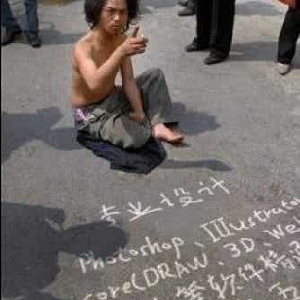 专业设计
Photoshop、Illustrator
Corel(DRAW、3D、We
等软件精通